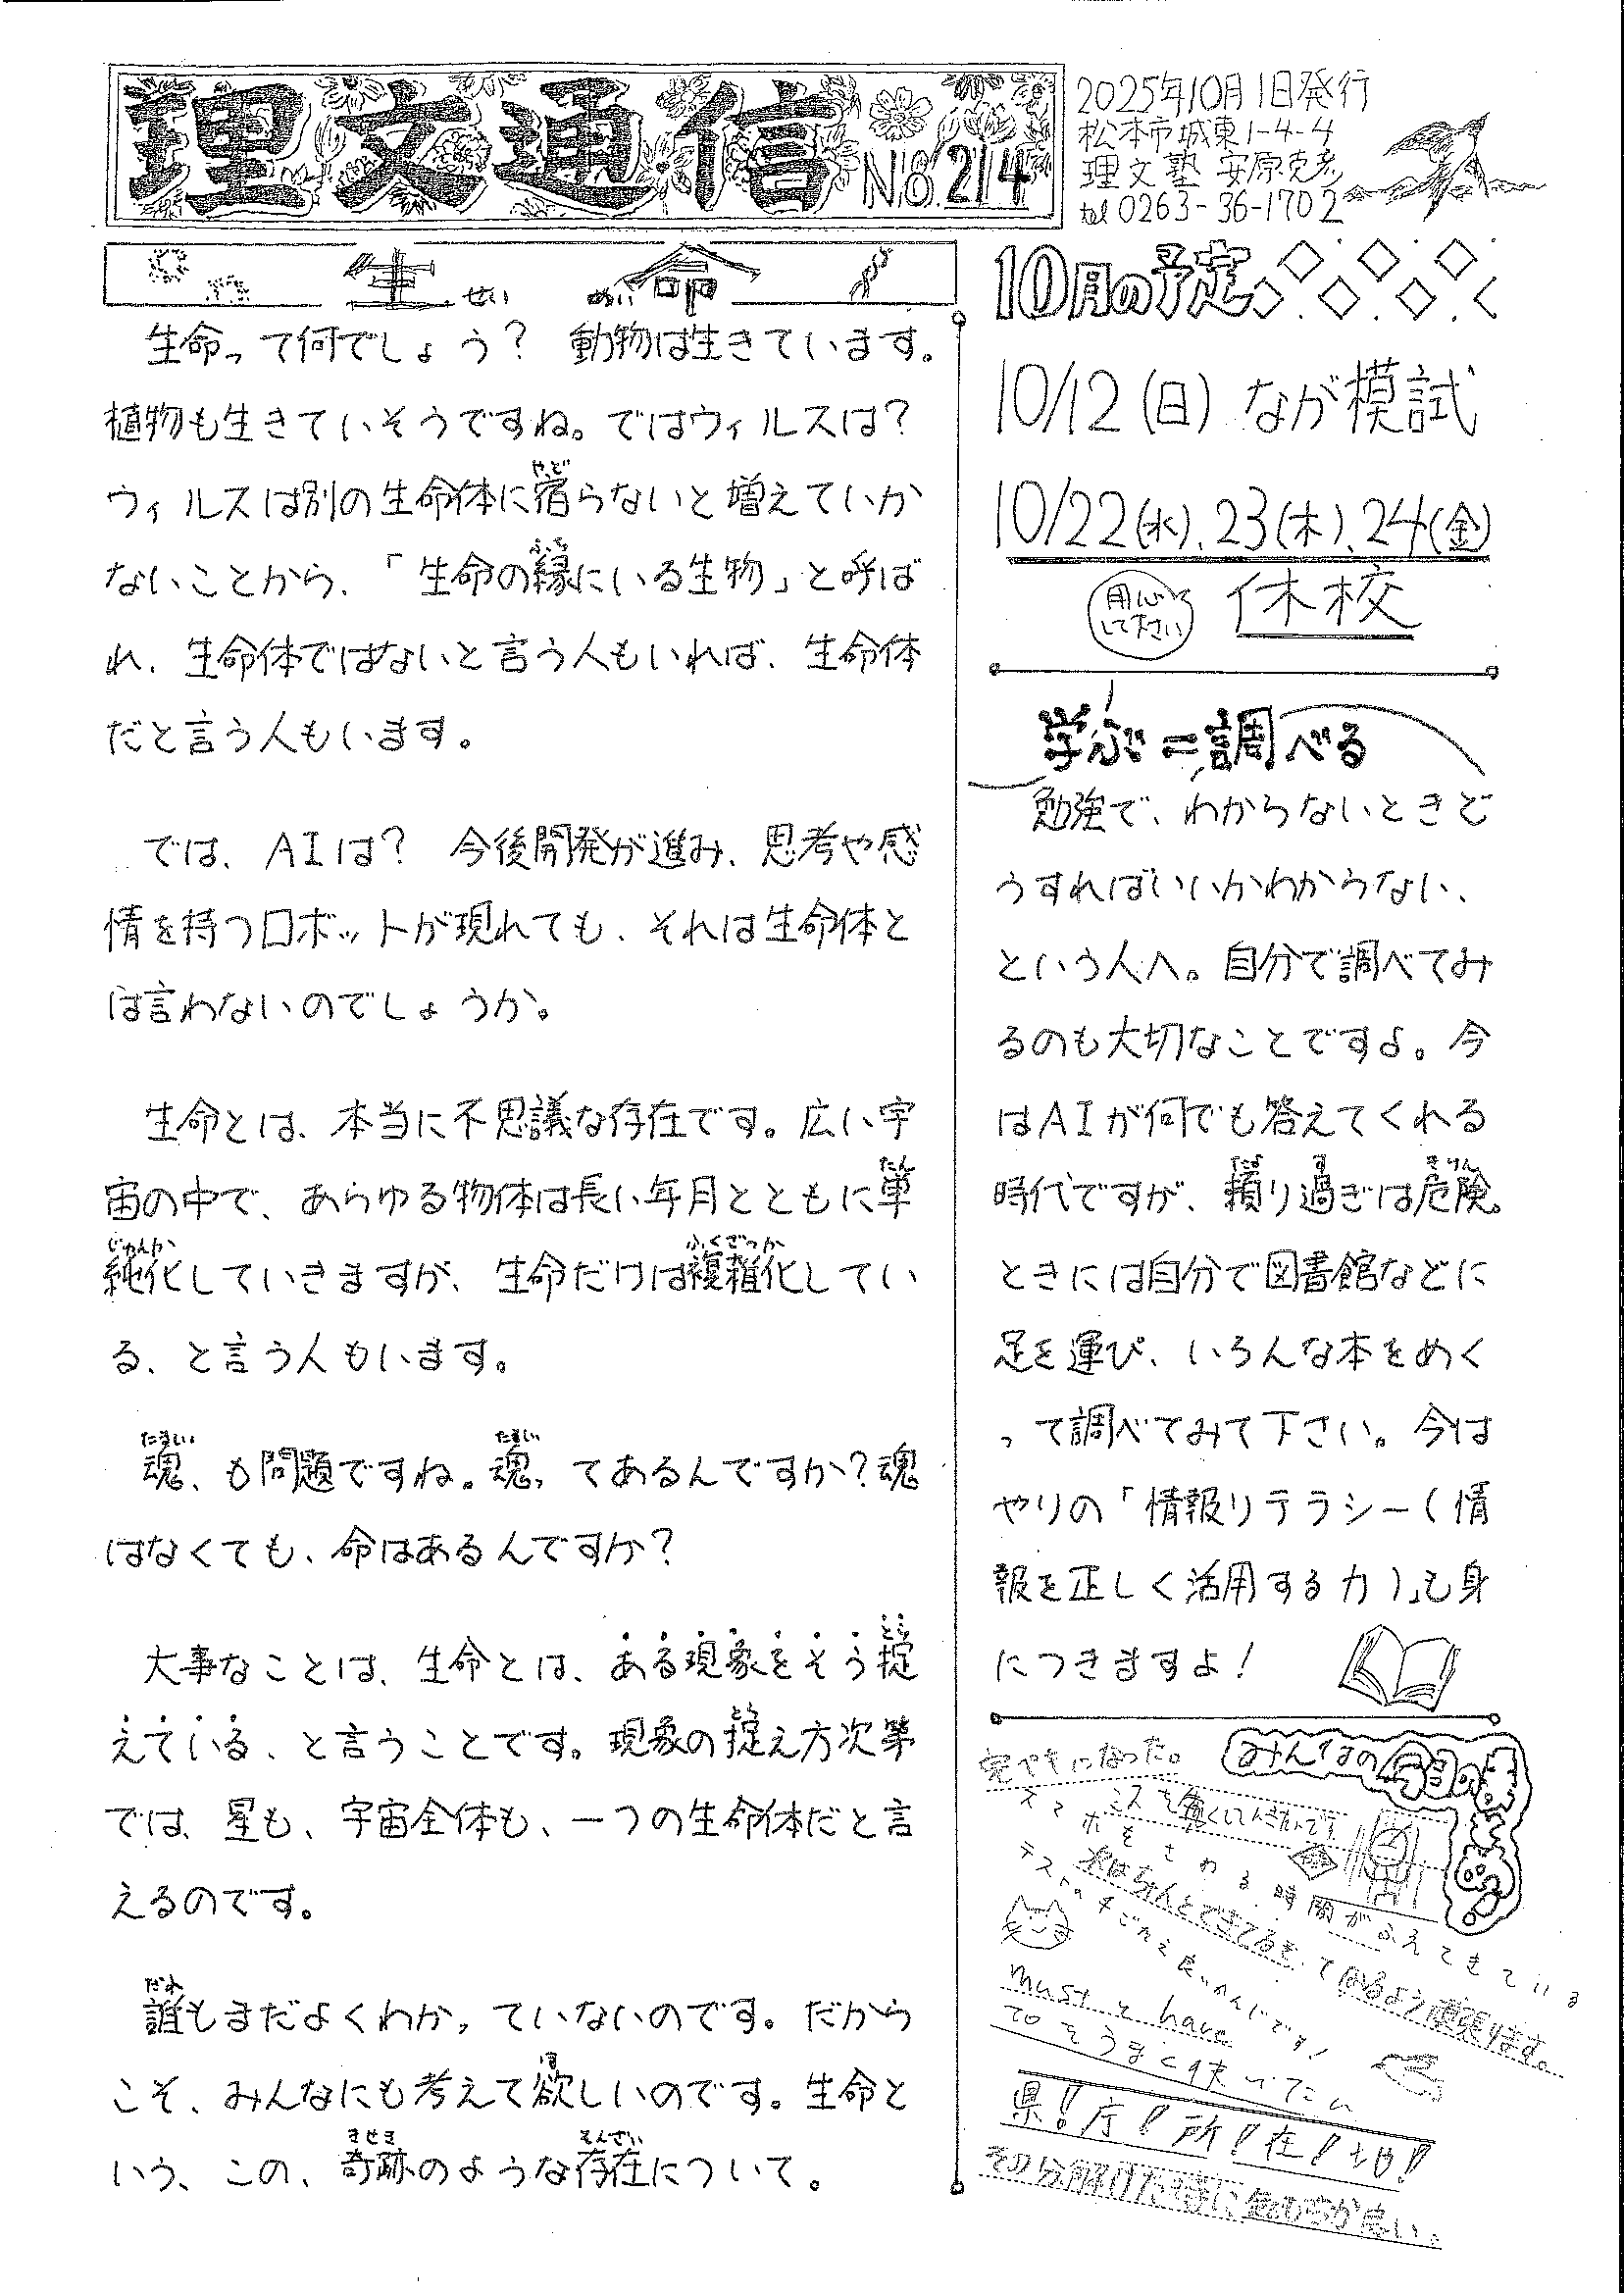 理文通信 No.214
2025年10月1日発行
松本市城東1-4-4
理文塾 安原克彦
tel 0263-36-1702
生せい 命めい
生命って何でしょう? 動物は生きています。
植物も生きていそうですね。ではウィルスは?
ウィルスは別の生命体に宿やどらないと増えていか
ないことから、「生命の縁ふちにいる生物」と呼ば
れ、生命体ではないと言う人もいれば、生命体
だと言う人もいます。
では、AIは? 今後開発が進み、思考や感
情を持つロボットが現れても、それは生命体と
は言わないのでしょうか。
生命とは、本当に不思議な存在です。広い宇
宙の中で、あらゆる物体は長い年月とともに単たん
純化じゅんかしていきますが、生命だけは複雑化ふくざつかしてい
る、と言う人もいます。
魂たましい、も問題ですね。魂たましいってあるんですか?魂
はなくても、命はあるんですか?
大事なことは、生命とは、ある現象をそう捉とら
えている、と言うことです。現象の捉とらえ方次第
では、星も、宇宙全体も、一つの生命体だと言
えるのです。
誰だれもまだよくわかっていないのです。だから
こそ、みんなにも考えて欲ほしいのです。生命と
いう、この、奇跡きせきのような存在そんざいについて。
10月の予定
10/12(日) なが模試
10/22(水)、23(木)、24(金)
用心して下さい
休校
学ぶ=調べる
勉強で、わからないときど
うすればいいかわからない、
という人へ。自分で調べてみ
るのも大切なことですよ。今
はAIが何でも答えてくれる
時代ですが、頼たより過すぎは危険きけん。
ときには自分で図書館などに
足を運び、いろんな本をめく
って調べてみて下さい。今は
やりの「情報リテラシー(情
報を正しく活用する力)」も身
につきますよ!
みんなの
完ペキになった。
ミスを無くしていきたいです
スマホをさわる時間がふえてきている
次はちゃんとできてるをってなるよう頑張ります。
must と have
to をうまく使いたい
県!庁!所!在!地!
その分解けた時に気もちが良い。